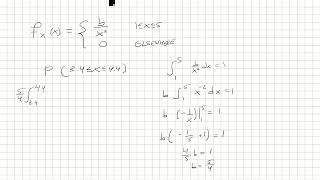 f_x(x) = { b/x² 1≤x≤5
0 ELSEWHERE
P (3.4≤x≤4.4)
5/4 ∫_{3.4}^{4.4}
∫_1^5 b/x² dx = 1
b ∫_1^5 x^{-2} dx = 1
b (-1/x)|_1^5 = 1
b(-1/5 + 1) = 1
4/5 b = 1
b = 5/4